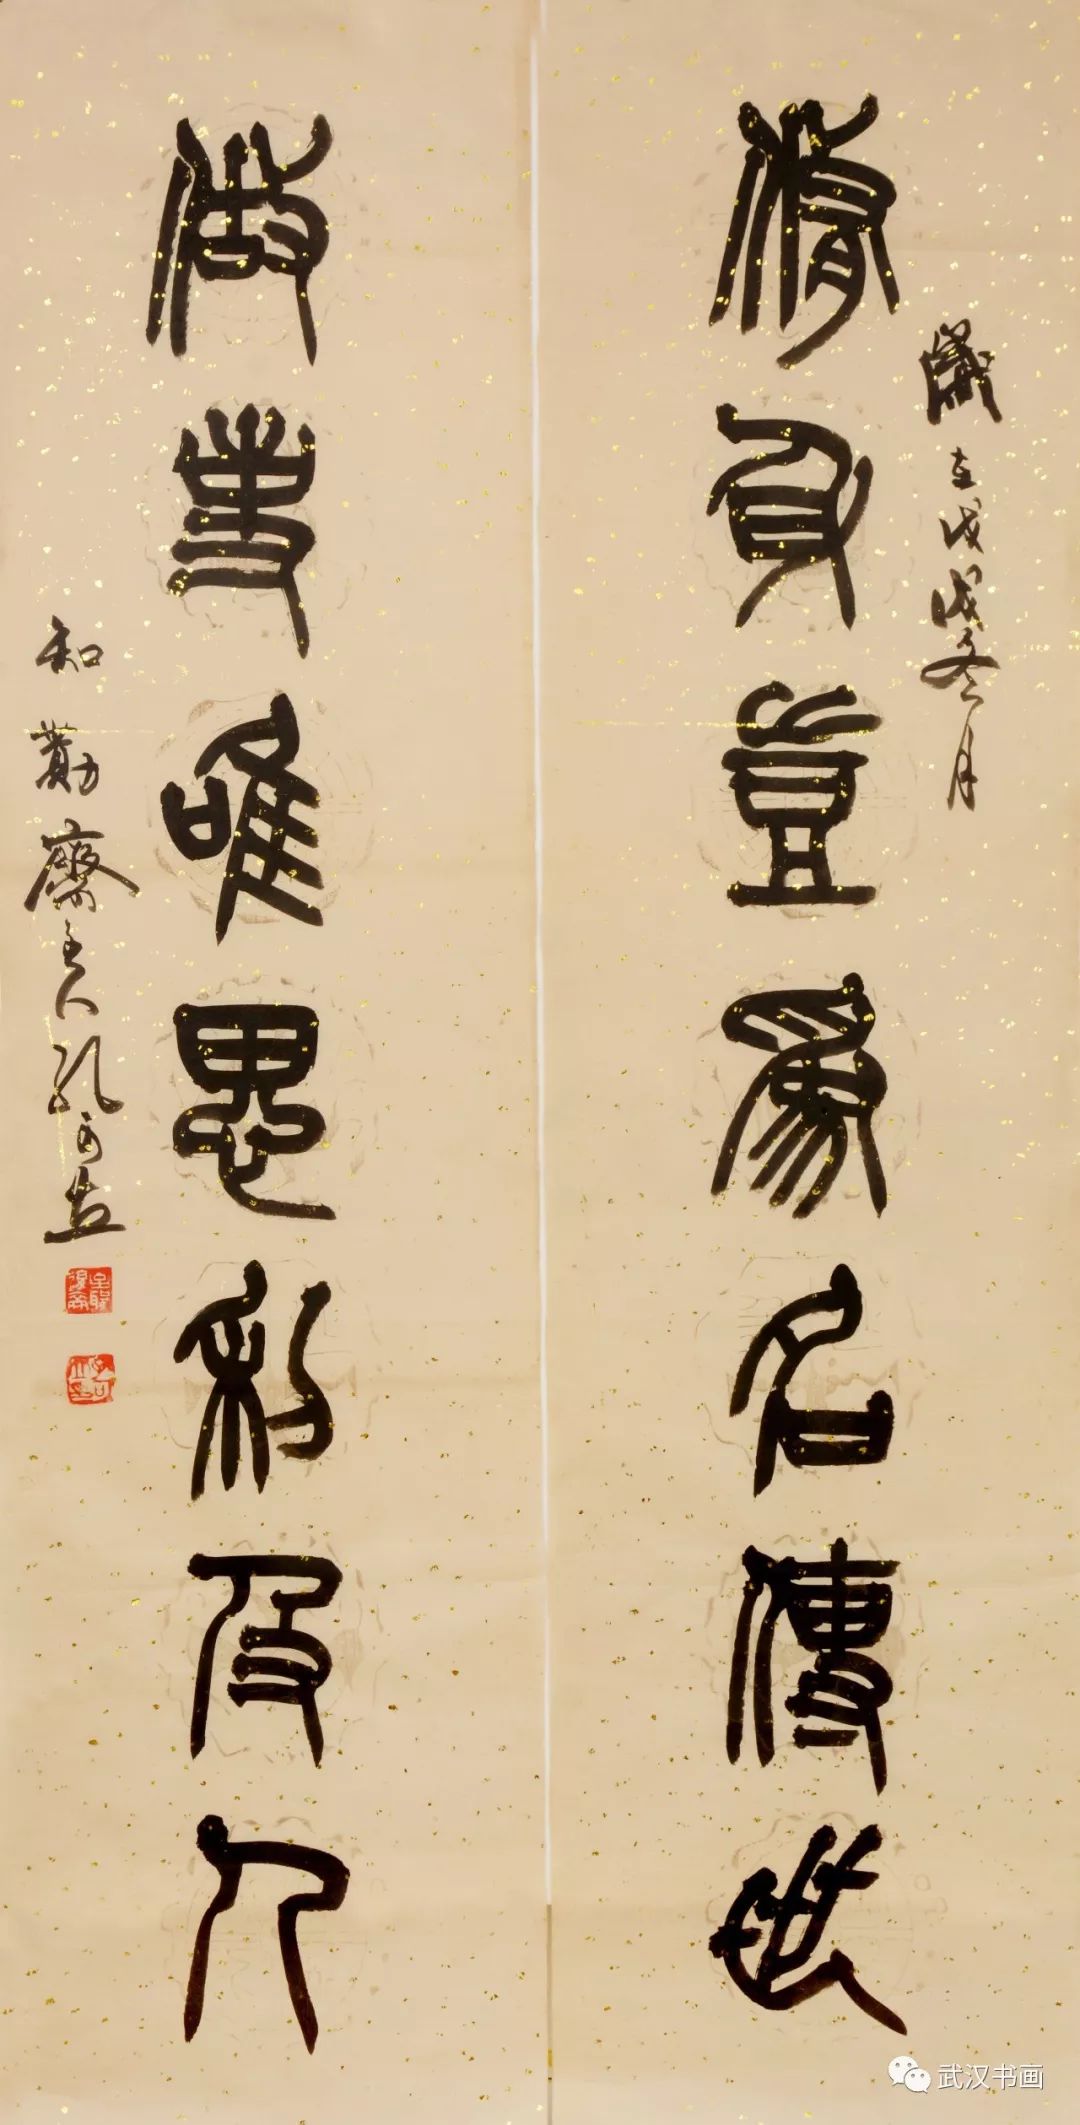 脩身豈爲名傳世
歲在戊戌冬月
做事唯思利及人
和勤齋主人孔可立
武汉书画